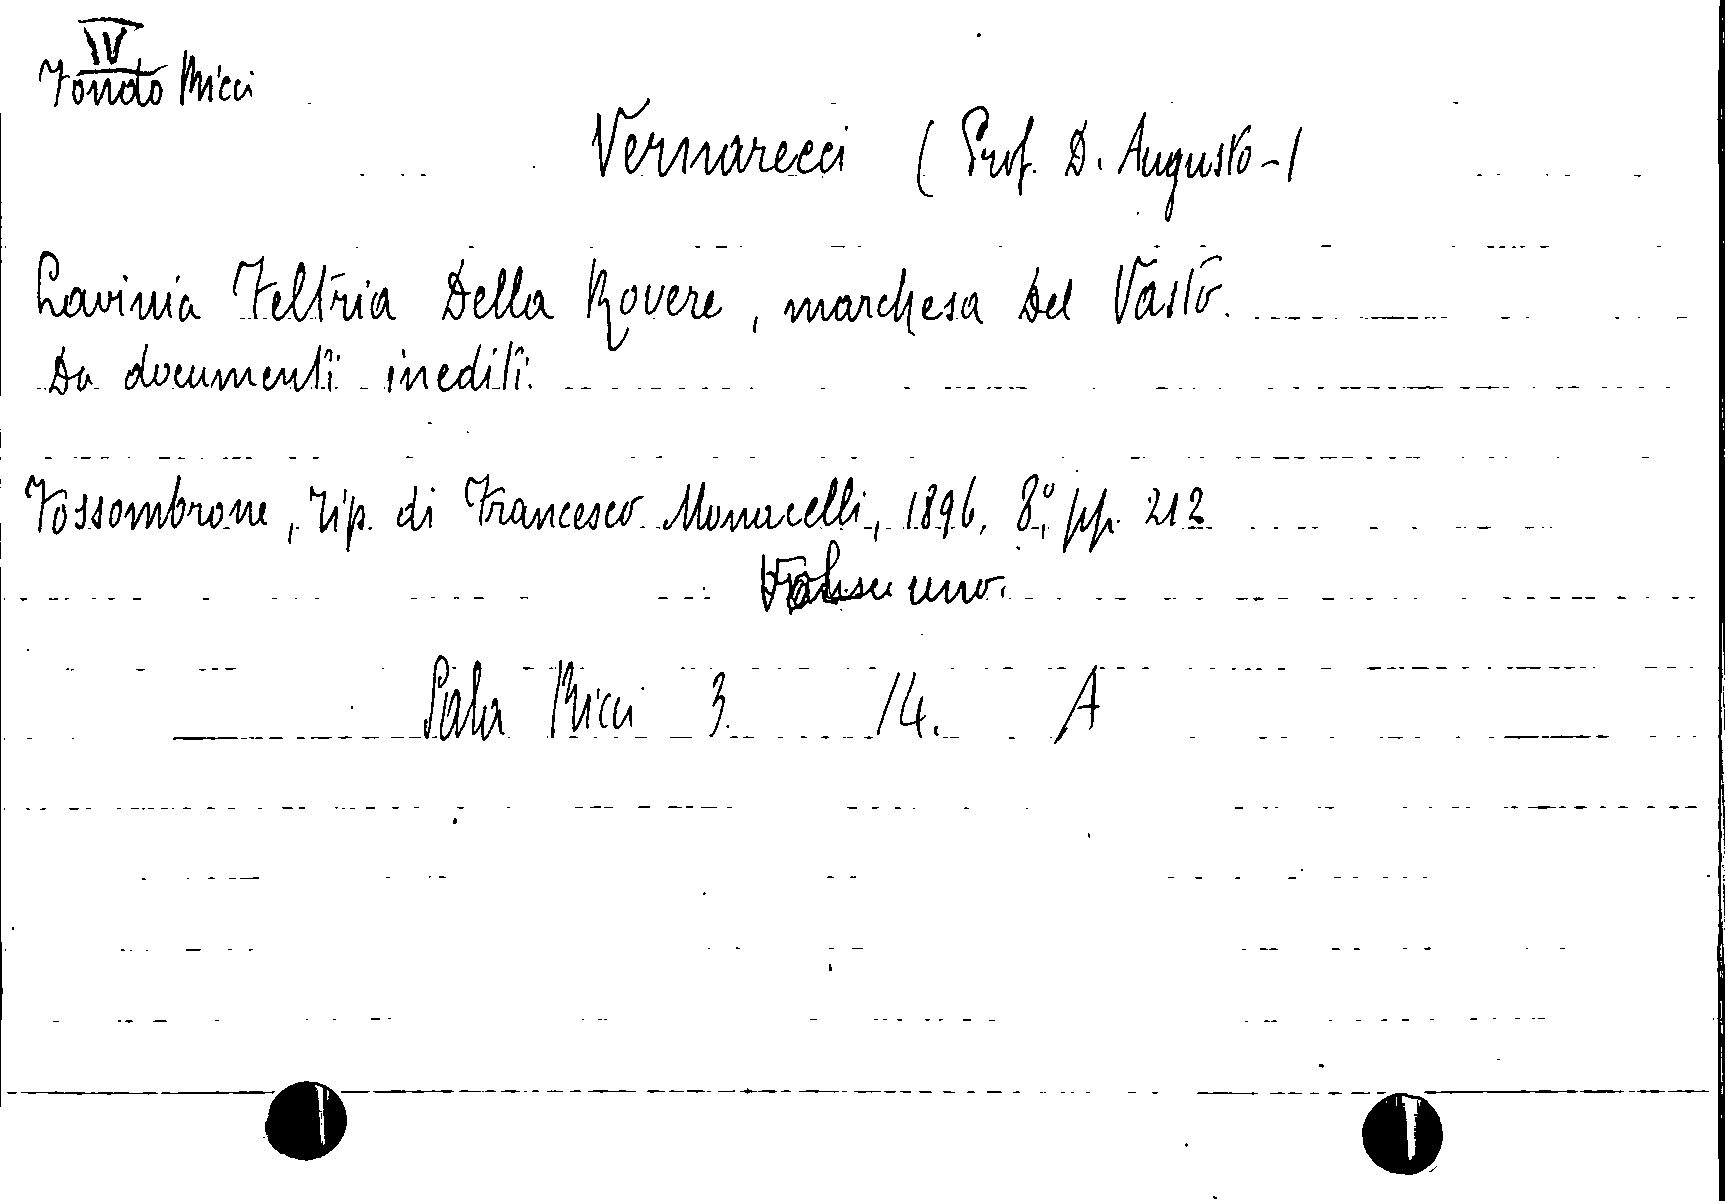 IV
Fondo Ricci
Vernarecci (Prof. D. Augusto-)
Lavinia Feltria Della Rovere, marchesa Del Vasto.
Da documenti inediti.
Fossombrone, Tip. di Francesco Monacelli, 1896, 8°, pp. 212
uno.
Sala Ricci 3 14. A